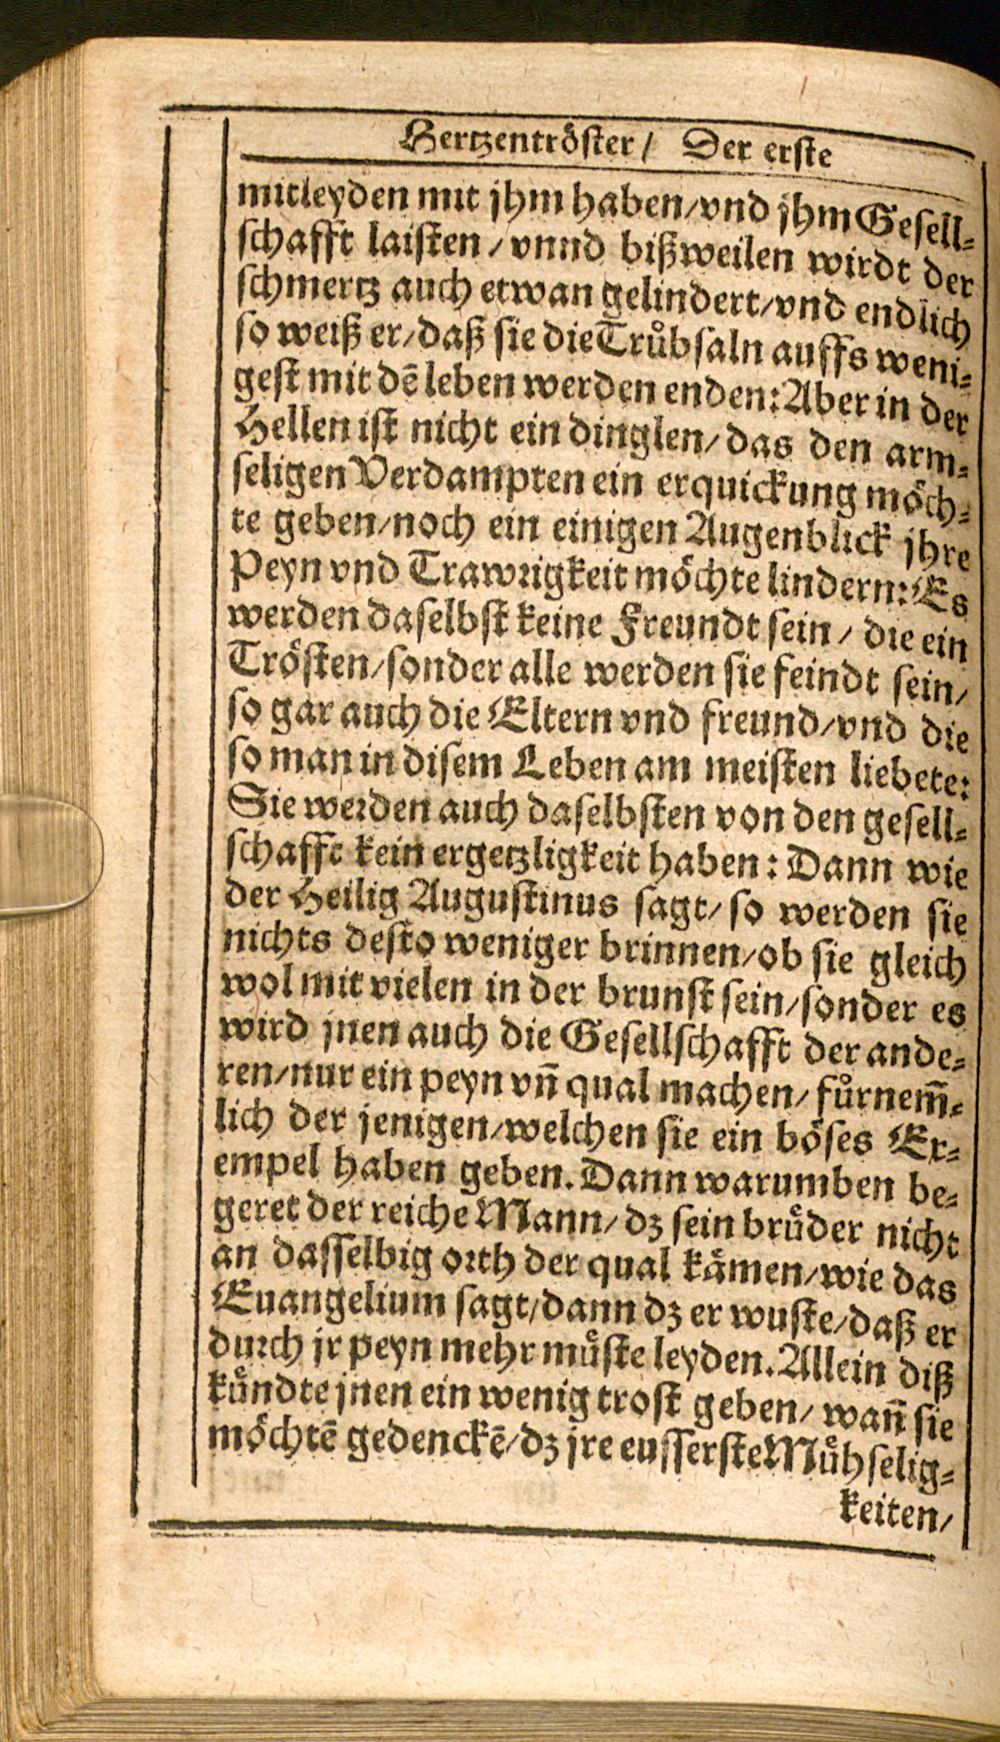 Hertzentröster / Der erste
mitleyden mit jhm haben/vnd jhm Gesell⸗
schafft laisten / vnnd bißweilen wirdt der
schmertz auch etwan gelindert/vnd endlich
so weiß er/daß sie die Trůbsaln auffs weni⸗
gest mit dē leben werden enden: Aber in der
Hellen ist nicht ein dinglen/ das den arm⸗
seligen Verdampten ein erquickung möch⸗
te geben/noch ein einigen Augenblick jhre
Peyn vnd Trawrigkeit möchte lindern: Es
werden daselbst keine Freundt sein / die ein
Trösten/sonder alle werden sie feindt sein/
so gar auch die Eltern vnd freund/vnd die
so man in disem Leben am meisten liebete:
Sie werden auch daselbsten von den gesell⸗
schafft kein ergetzligkeit haben: Dann wie
der Heilig Augustinus sagt/ so werden sie
nichts desto weniger brinnen/ob sie gleich
wol mit vielen in der brunst sein/sonder es
wird jnen auch die Gesellschafft der ande⸗
ren/nur ein peyn vn̄ qual machen/ fůrnem̄⸗
lich der jenigen/welchen sie ein böses Ex⸗
empel haben geben. Dann warumben be⸗
geret der reiche Mann/ dz sein brůder nicht
an dasselbig orth der qual kämen/wie das
Euangelium sagt/dann dz er wuste/daß er
durch jr peyn mehr můste leyden. Allein diß
kůndte jnen ein wenig trost geben/ wan̄ sie
möchtē gedenckē/dz jre eusserste Můhselig⸗
keiten/